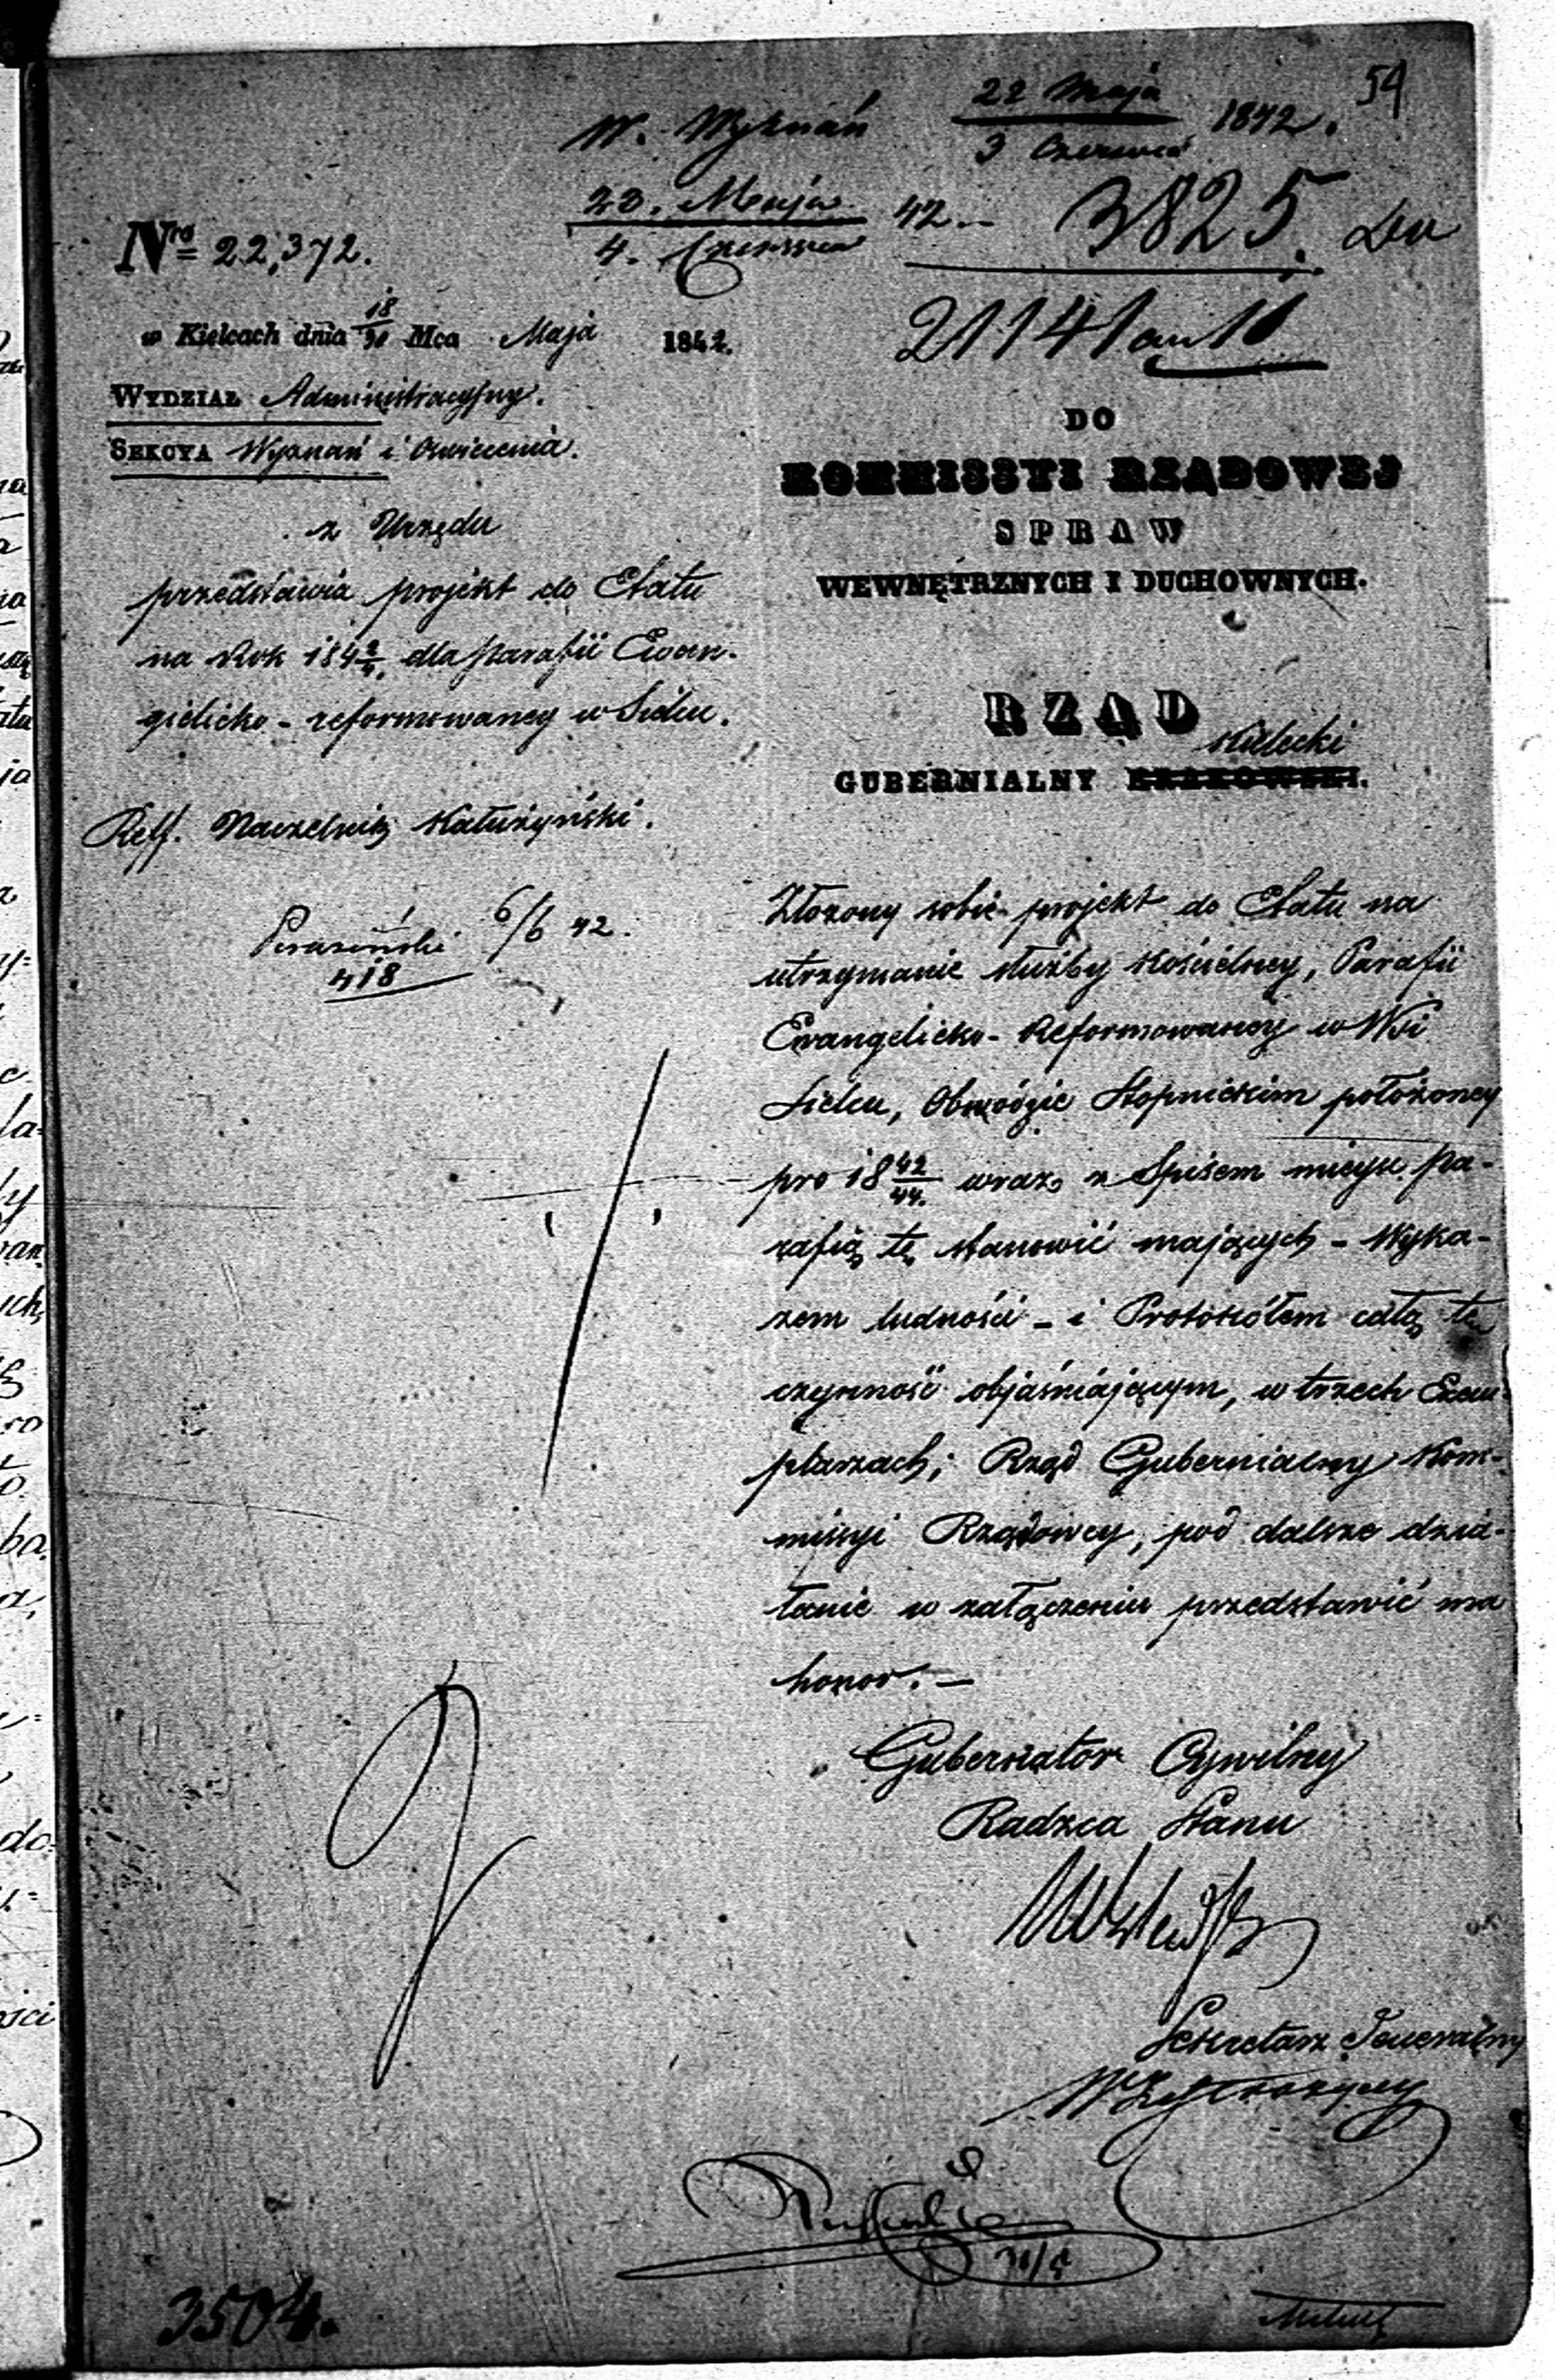 54
W. Wyznań 22 Maja 1842.
3 Czerwca
23. Maja 42 — 3825.
4. Czerwca
Nro 22,372.
21141
w Kielcach dnia 18/30 Mca Maja 1842.
WYDZIAŁ Administracyjny.
SEKCYA Wyznań i Oświecenia.
z Urzędu
przedstawia projekt do Etatu
na Rok 184 2/4. dla parafii Ewan-
gielicko - reformowaney w Sielcu.
Reff. Naczelnik Kałużyński.
6/6 42.
418
DO
KOMMISSYI RZĄDOWEJ
SPRAW
WEWNĘTRZNYCH I DUCHOWNYCH.
RZĄD
Kielecki
GUBERNIALNY KRAKOWSKI.
Złożony sobie projekt do Etatu na
utrzymanie służby Kościelney, Parafii
Ewangelicko - Reformowaney w Wsi
Sielcu, Obwodzie Stopnickim położoney
pro 18 42/44. wraz z Spisem mieysc pa-
rafią tę stanowić mających - Wyka-
zem ludności - i Protokółem całą tę
czynność objaśniającym, w trzech Exem-
plarzach; Rząd Gubernialny Kom-
missyi Rządowey, pod dalsze dzia-
łanie w załączeniu przedstawić ma
honor. —
Gubernator Cywilny
Radzca Stanu
Sekretarz Jeneralny
30/5
3504.